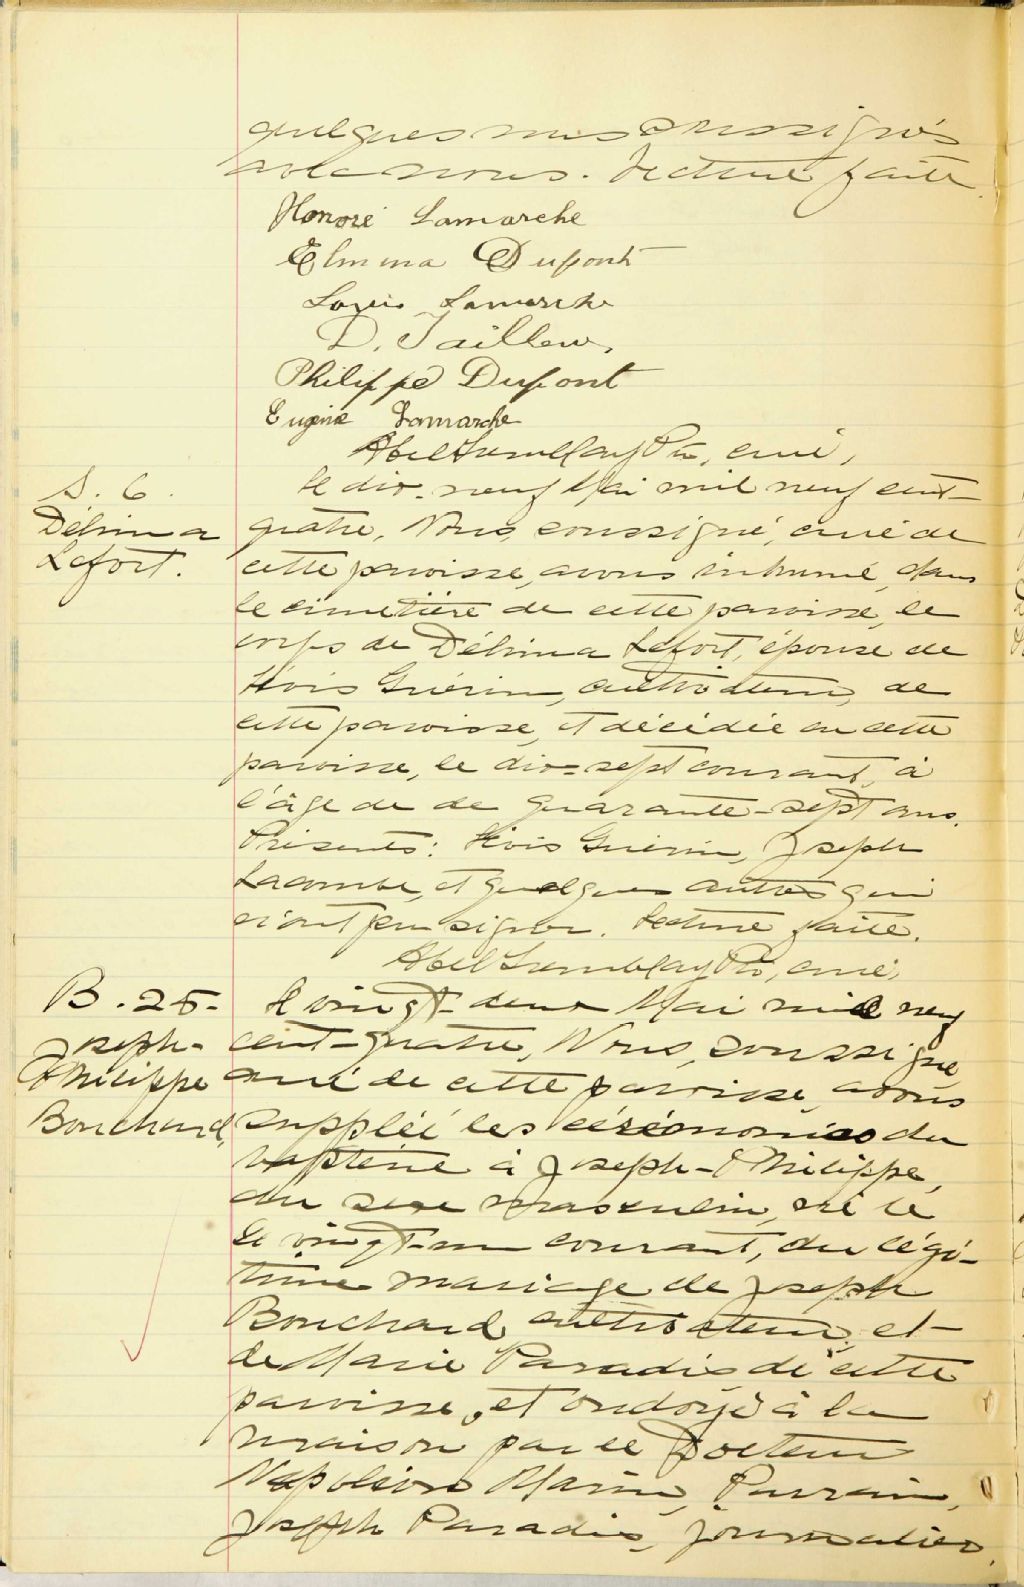 quelques uns soussignés
avec nous. Lecture faite.
Honoré Lamarche
Elmina Dupont
Louis Lamarche
D.
Philippe Dupont
Eugénie Lamarche
Abel Tremblay Ptre, curé,
S. 6.
Délima
Lefort.
Le dix-neuf Mai mil neuf cent-
quatre, Nous, soussigné, curé de
cette paroisse, avons inhumé, dans
le cimetière de cette paroisse, le
corps de Délima Lefort, épouse de
Guérin, cultivateur, de
cette paroisse, et décédée en cette
paroisse, le dix-sept courant, à
l'âge de de quarante-sept ans.
Présents: Guérin, Joseph
Lacombe, et quelques autres qui
n'ont pu signer. Lecture faite.
Abel Tremblay Ptre, curé,
B. 25.
Joseph-
Philippe
Bouchard,
Le vingt-deux Mai mil neuf
cent-quatre, Nous, soussigné,
curé de cette paroisse, avons
suppléé les cérémonies du
baptême à Joseph-Philippe,
du sexe masculin, né le
le vingt-un courant, du légi-
time mariage de Joseph
Bouchard cultivateur, et
de Marie Paradis de cette
paroisse, et ondoyé à la
maison par le Docteur
Napoléon Parrain,
Joseph Paradis, journalier,